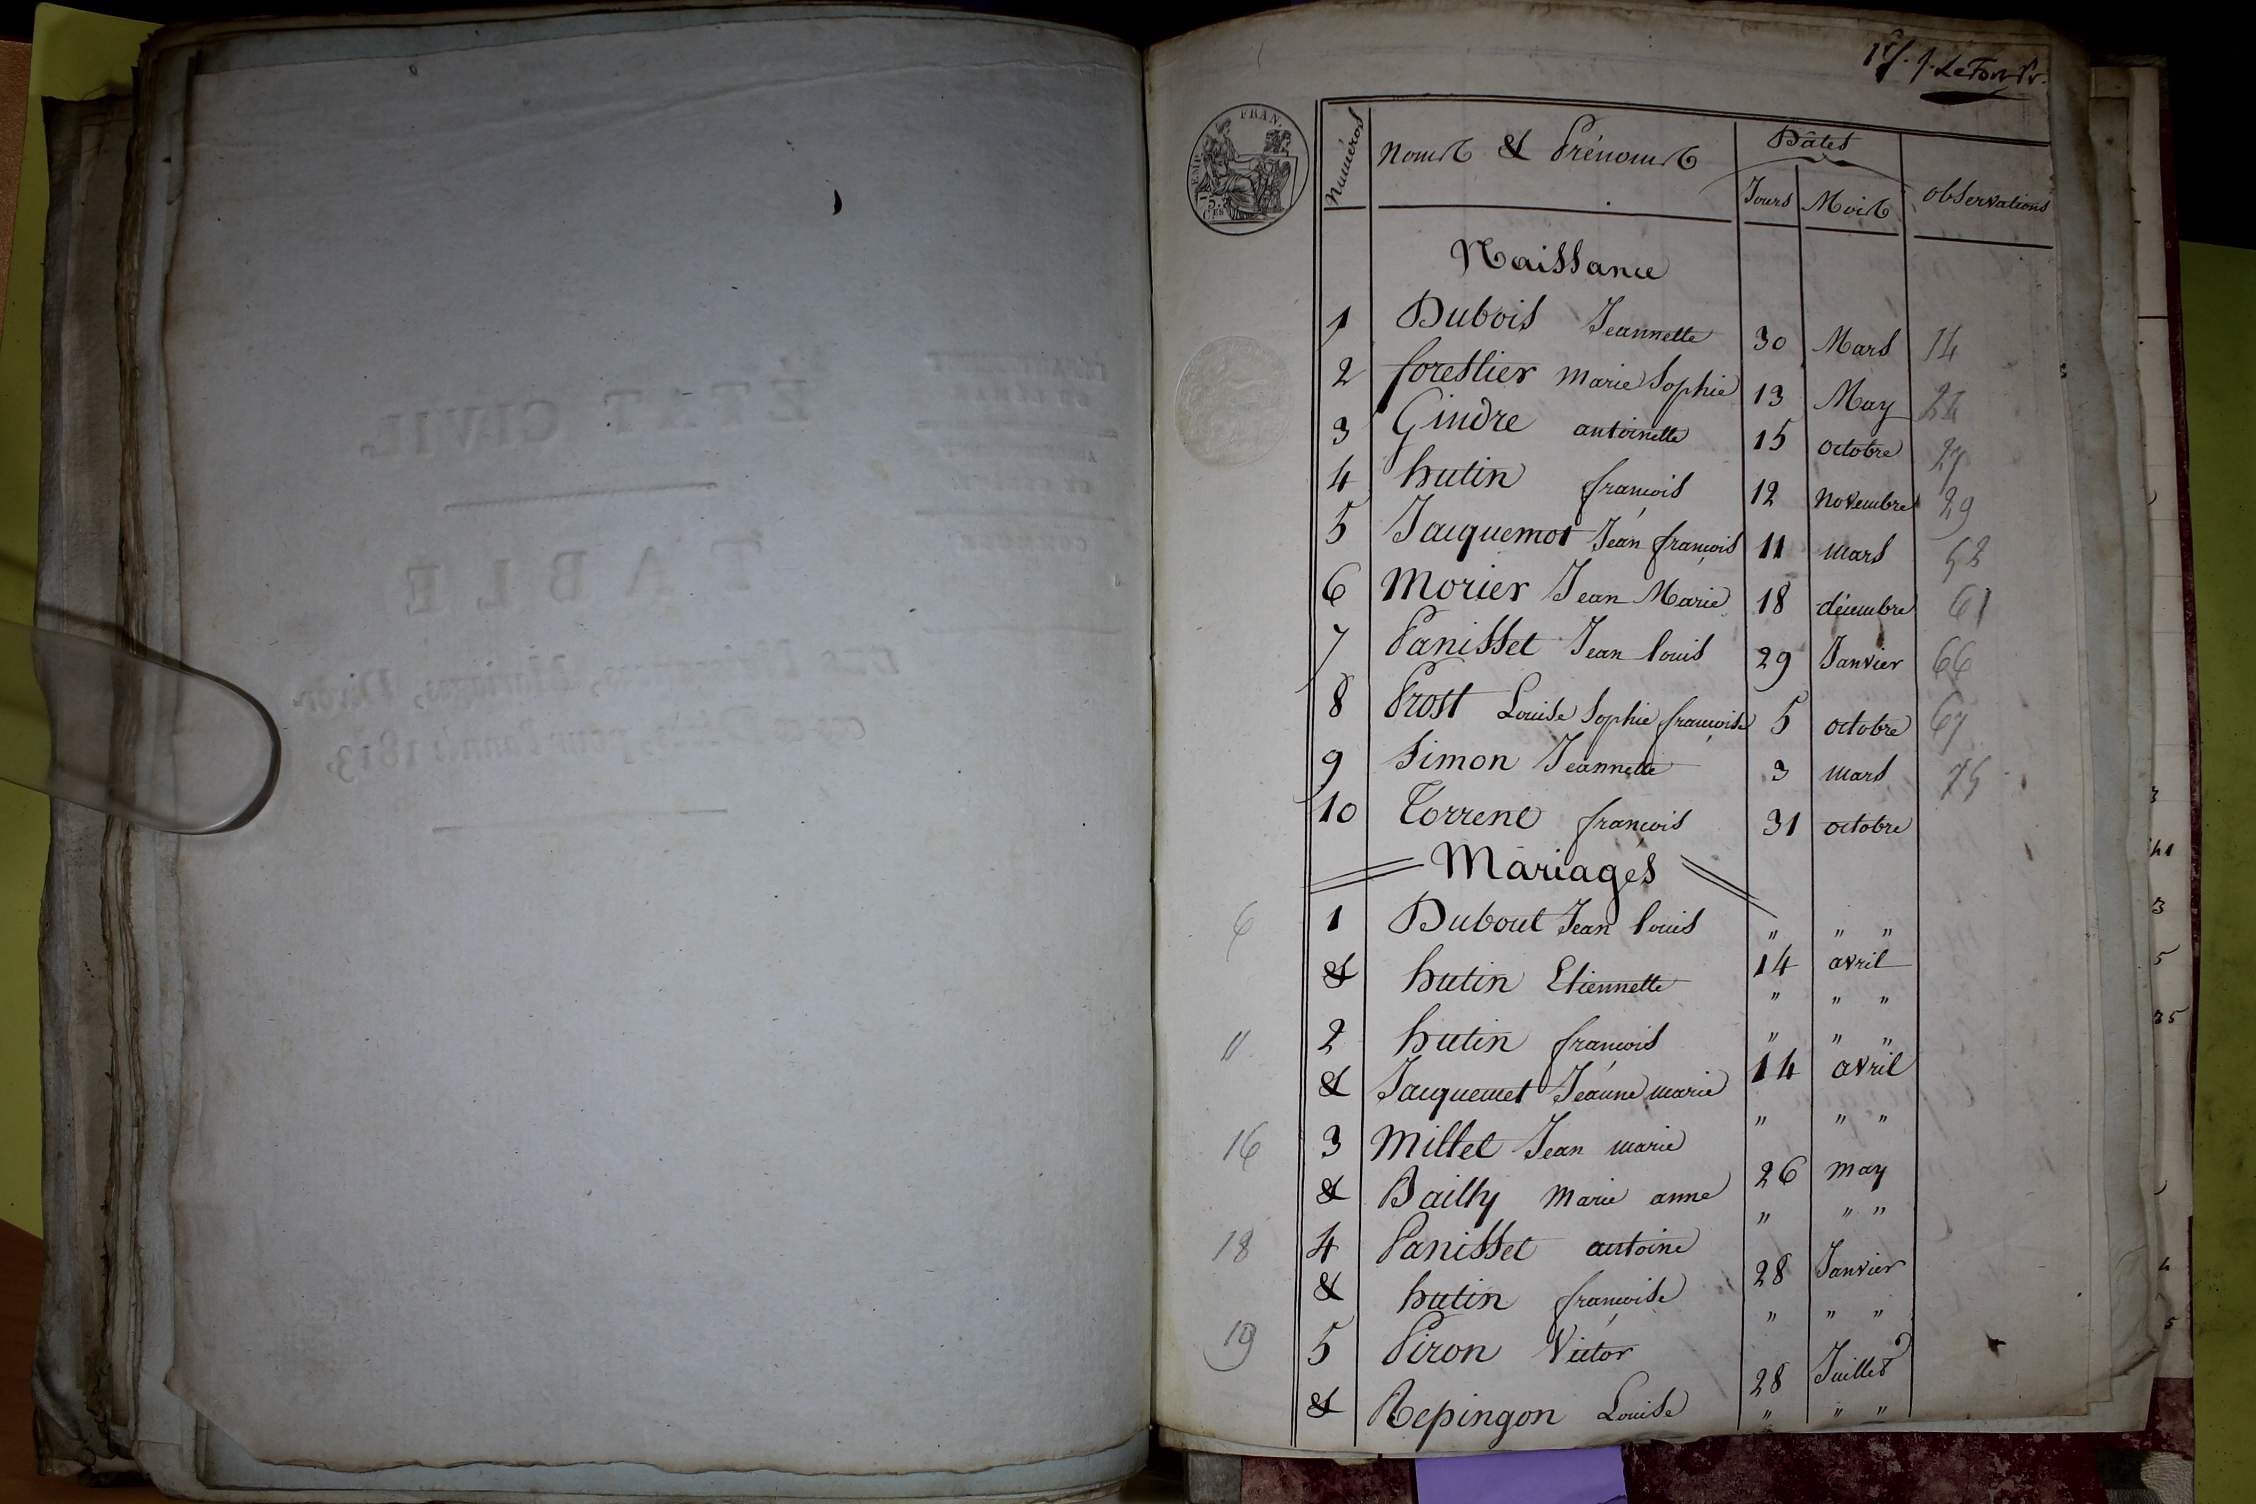 Numéros
Noms & Prénoms
Dâtes
Jours
Mois
observations
EMP. FRAN.
75.
Ces
Naissance
1 Dubois Jeannette 30 Mars 14
2 forestier marie Sophie 13 May 22
3 Gindre antoinette 15 octobre 27
4 hutin françois 12 novembre 29
5 Jacquemot Jean françois 11 mars 52
6 Morier Jean Marie 18 décembre 61
7 Panisset Jean louis 29 Janvier 66
8 Prost Louise Sophie françoise 5 octobre 67
9 Simon Jeannette 3 mars 75
10 Torrent françois 31 octobre
Mariages
6 1 Dubout Jean louis " " "
14 avril
& hutin Etiennette " " "
11 2 hutin françois " " "
14 avril
& Jacquemet Jeanne marie " " "
16 3 Millet Jean marie
26 may
& Bailly Marie anne " " "
18 4 Panisset antoine
28 Janvier
& hutin françoise " " "
19 5 Piron Victor
28 Juillet
& Repingon Louise " " "
ÉTAT CIVIL
TABLE
des Naissances, Mariages, Divor-
ces et Décès, pour l'année 1813.